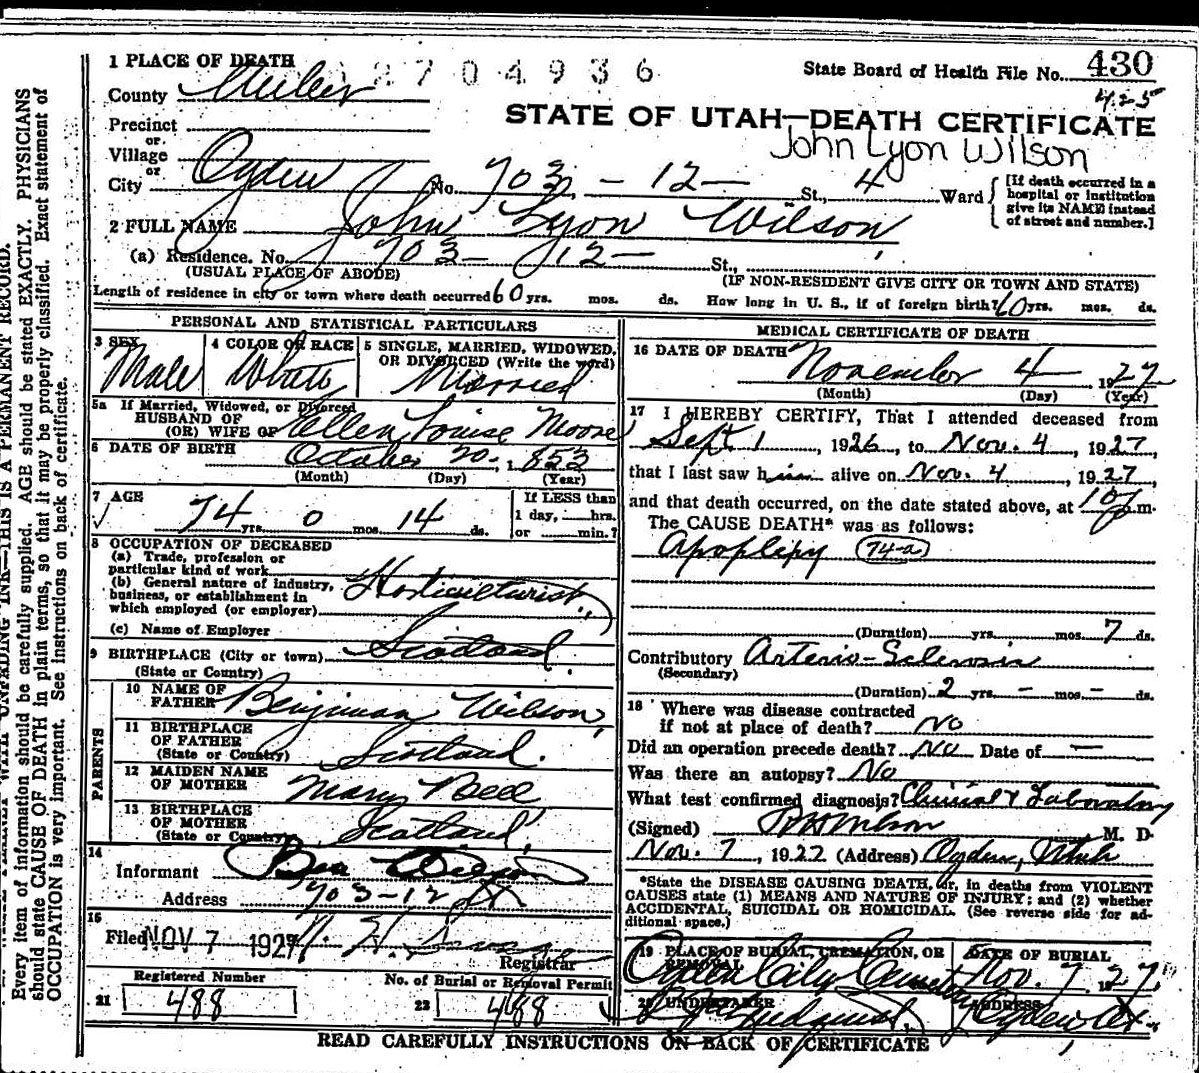 2704936
State Board of Health File No. 430
425
STATE OF UTAH—DEATH CERTIFICATE
John Lyon Wilson
1 PLACE OF DEATH
County Weber
Precinct
or
Village
or
City Ogden No. 703 - 12 - St., 4 Ward
[If death occurred in a hospital or institution give its NAME instead of street and number.]
2 FULL NAME John Lyon Wilson
(a) Residence. No. 703 - 12 - St.,
(USUAL PLACE OF ABODE) (IF NON-RESIDENT GIVE CITY OR TOWN AND STATE)
Length of residence in city or town where death occurred 60 yrs. mos. ds. How long in U. S., if of foreign birth? 60 yrs. mos. ds.
PERSONAL AND STATISTICAL PARTICULARS
3 SEX Male
4 COLOR OR RACE White
5 SINGLE, MARRIED, WIDOWED, OR DIVORCED (Write the word) Married
5a If Married, Widowed, or Divorced
HUSBAND OF
(OR) WIFE OF Ellen Louise Moore
6 DATE OF BIRTH October 20, 1853
(Month) (Day) (Year)
7 AGE 74 yrs. 0 mos. 14 ds.
If LESS than
1 day, hrs.
or min.?
8 OCCUPATION OF DECEASED
(a) Trade, profession or
particular kind of work
(b) General nature of industry,
business, or establishment in
which employed (or employer) Horticulturist
(c) Name of Employer
9 BIRTHPLACE (City or town) Scotland
(State or Country)
PARENTS
10 NAME OF
FATHER Benjiman Wilson
11 BIRTHPLACE
OF FATHER
(State or Country) Scotland
12 MAIDEN NAME
OF MOTHER Mary Bell
13 BIRTHPLACE
OF MOTHER
(State or Country) Scotland
14
Informant Ben Wilson
Address 703-12 St
15
Filed NOV 7 1927
Registrar
Registered Number
21 488
No. of Burial or Removal Permit
22 488
MEDICAL CERTIFICATE OF DEATH
16 DATE OF DEATH November 4 1927
(Month) (Day) (Year)
17 I HEREBY CERTIFY, That I attended deceased from
Sept 1, 1926, to Nov. 4, 1927
that I last saw him alive on Nov. 4, 1927,
and that death occurred, on the date stated above, at m.
The CAUSE DEATH* was as follows:
Apoplipy 74-a
(Duration) yrs. mos. 7 ds.
Contributory Arterio-Sclerosis
(Secondary)
(Duration) 2 yrs. - mos. - ds.
18 Where was disease contracted
if not at place of death? No
Did an operation precede death? No Date of —
Was there an autopsy? No
What test confirmed diagnosis? Clinical & Laboratory
(Signed) M. D.
Nov. 7, 1927 (Address) Ogden, Utah
*State the DISEASE CAUSING DEATH, or, in deaths from VIOLENT
CAUSES state (1) MEANS AND NATURE OF INJURY; and (2) whether
ACCIDENTAL, SUICIDAL OR HOMICIDAL. (See reverse side for ad-
ditional space.)
19 PLACE OF BURIAL, CREMATION, OR
REMOVAL
Ogden City Cemetery
DATE OF BURIAL
Nov. 7 1927
20 UNDERTAKER
ADDRESS
Ogden Ut.
READ CAREFULLY INSTRUCTIONS ON BACK OF CERTIFICATE
THIS IS A PERMANENT RECORD.
Every item of information should be carefully supplied. AGE should be stated EXACTLY. PHYSICIANS
should state CAUSE OF DEATH in plain terms, so that it may be properly classified. Exact statement of
OCCUPATION is very important. See instructions on back of certificate.